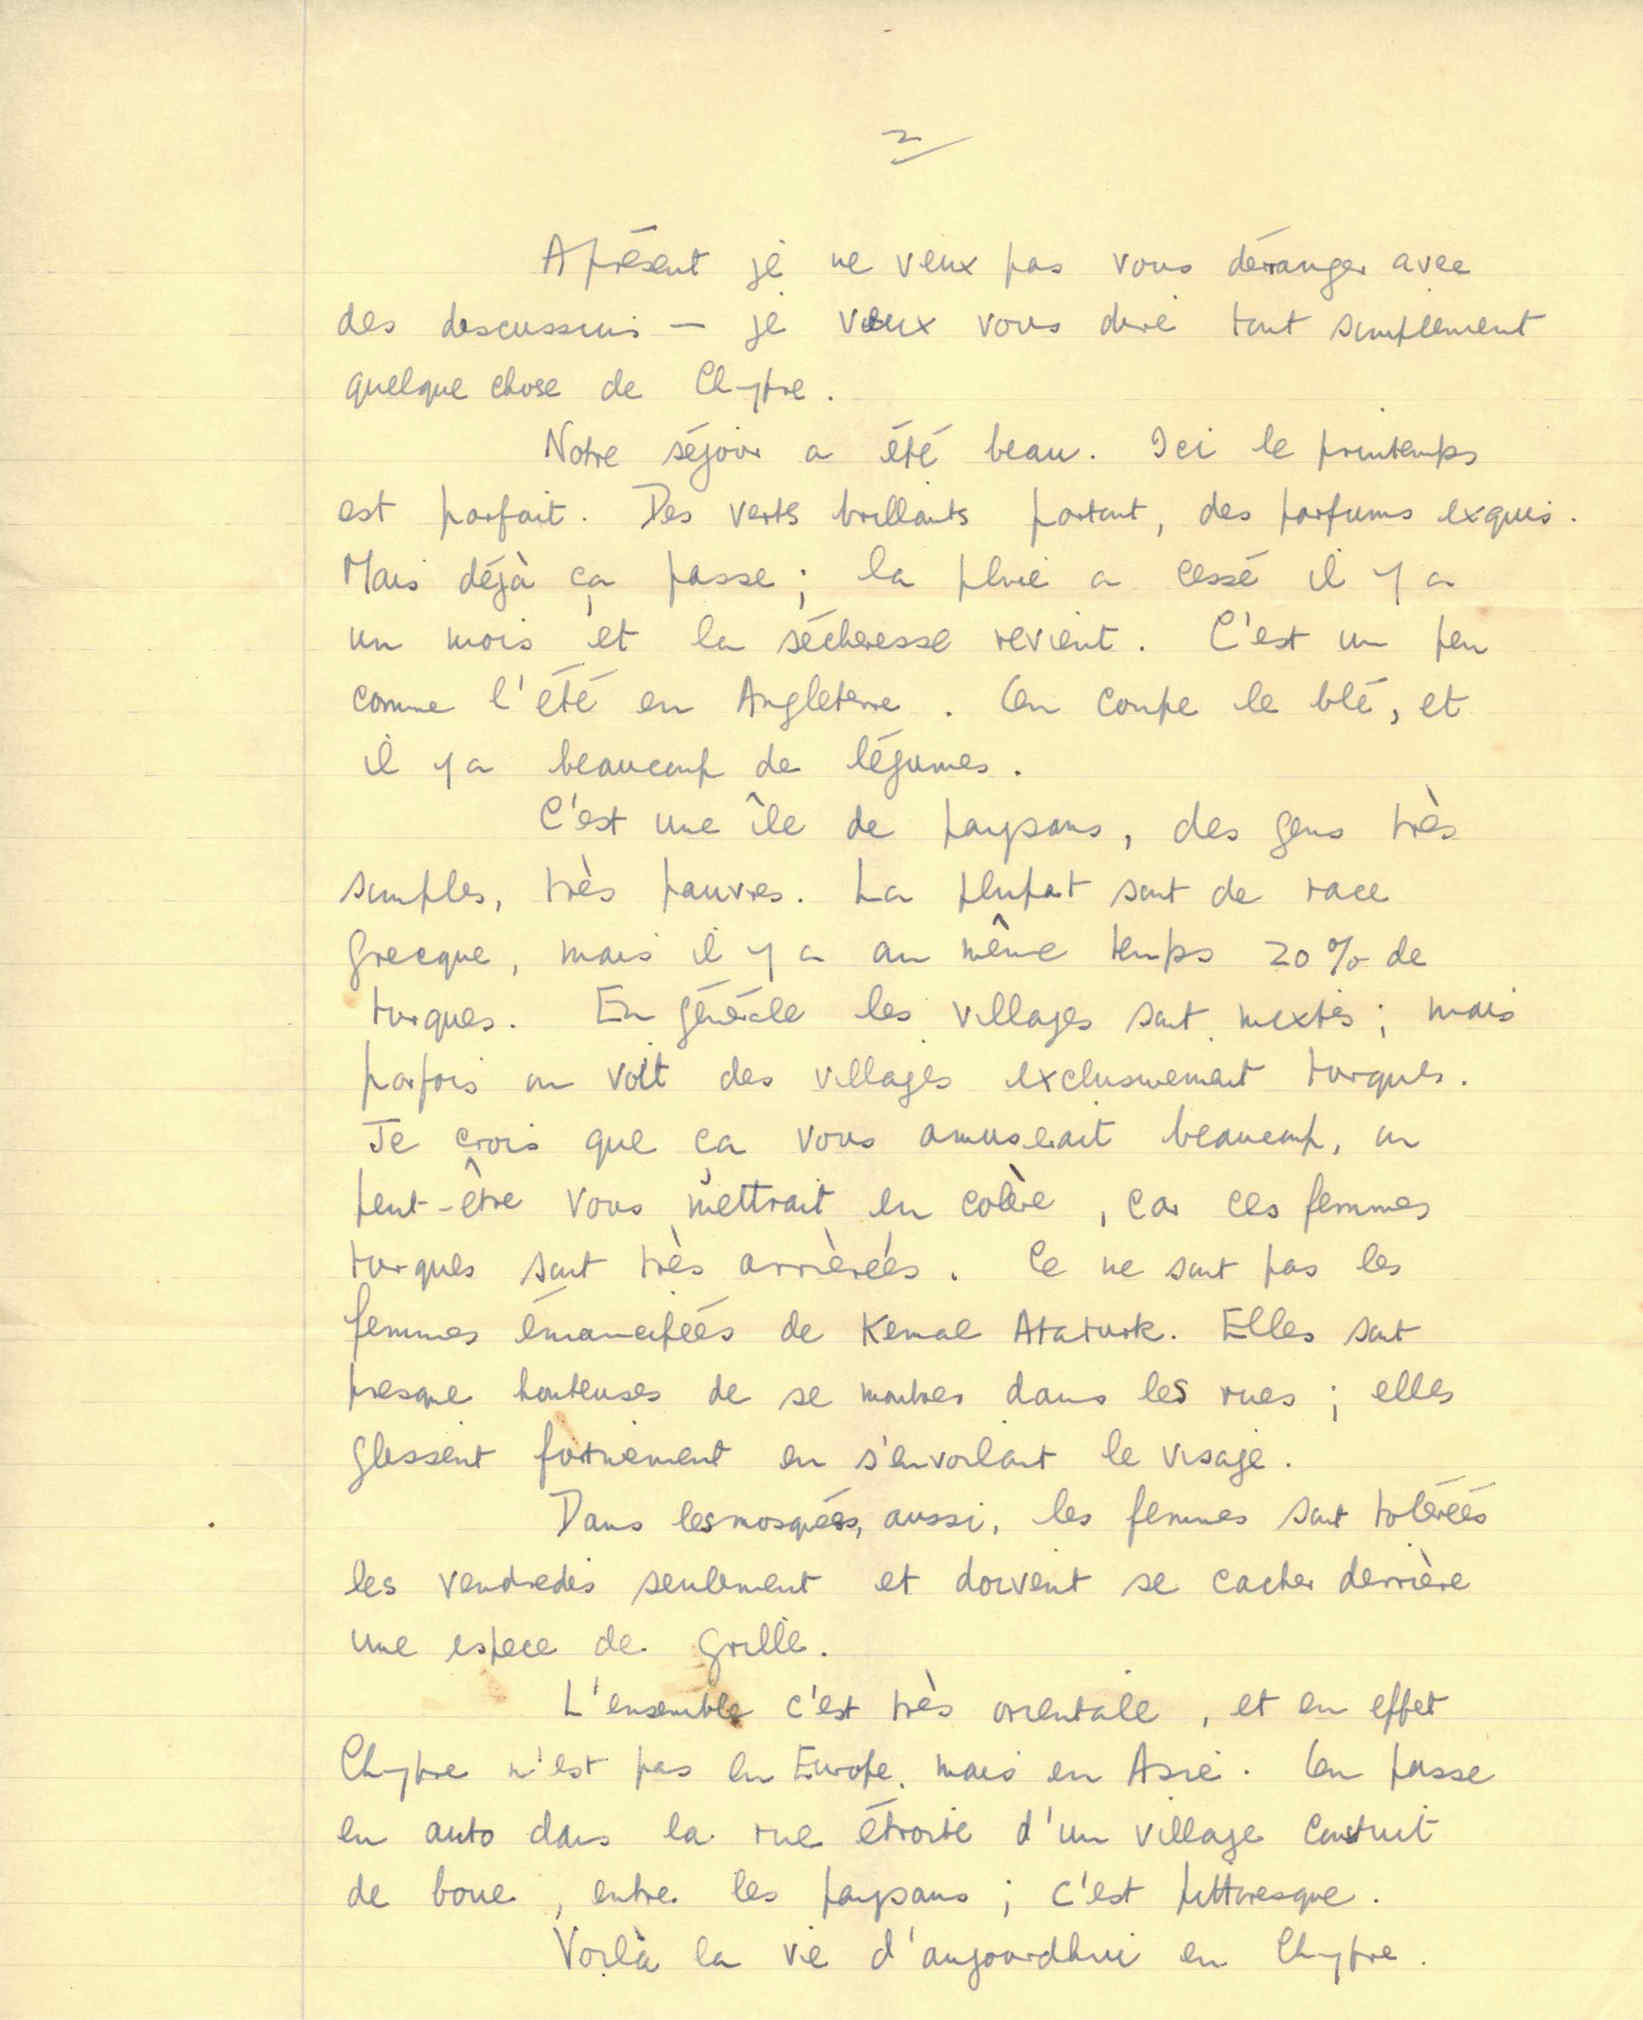 2
A présent je ne veux pas vous déranger avec
des discussions — je veux vous dire tout simplement
quelque chose de Chypre.
Notre séjour a été beau. Ici le printemps
est parfait. Des verts brillants partout, des parfums exquis.
Mais déjà ça passe; la pluie a cessé il y a
un mois et la sécheresse revient. C'est un peu
comme l'été en Angleterre. On coupe le blé, et
il y a beaucoup de légumes.
C'est une île de paysans, des gens très
simples, très pauvres. La plupart sont de race
grecque, mais il y a au même temps 20% de
turques. En générale les villages sont mixtes; mais
parfois on voit des villages exclusivement turques.
Je crois que ça vous amuserait beaucoup, ou
peut-être vous mettrait en colère, car ces femmes
turques sont très arrièrées. Ce ne sont pas les
femmes émancipées de Kemal Ataturk. Elles sont
presque honteuses de se montrer dans les rues; elles
glissent furtivement en s'envoilant le visage.
Dans les mosquées, aussi, les femmes sont tolérées
les vendredis seulement et doivent se cacher derrière
une espece de grille.
L'ensemble c'est très orientale, et en effet
Chypre n'est pas en Europe, mais en Asie. On passe
en auto dans la rue étroite d'un village construit
de boue, entre les paysans; c'est pittoresque.
Voilà la vie d'aujourdhui en Chypre.